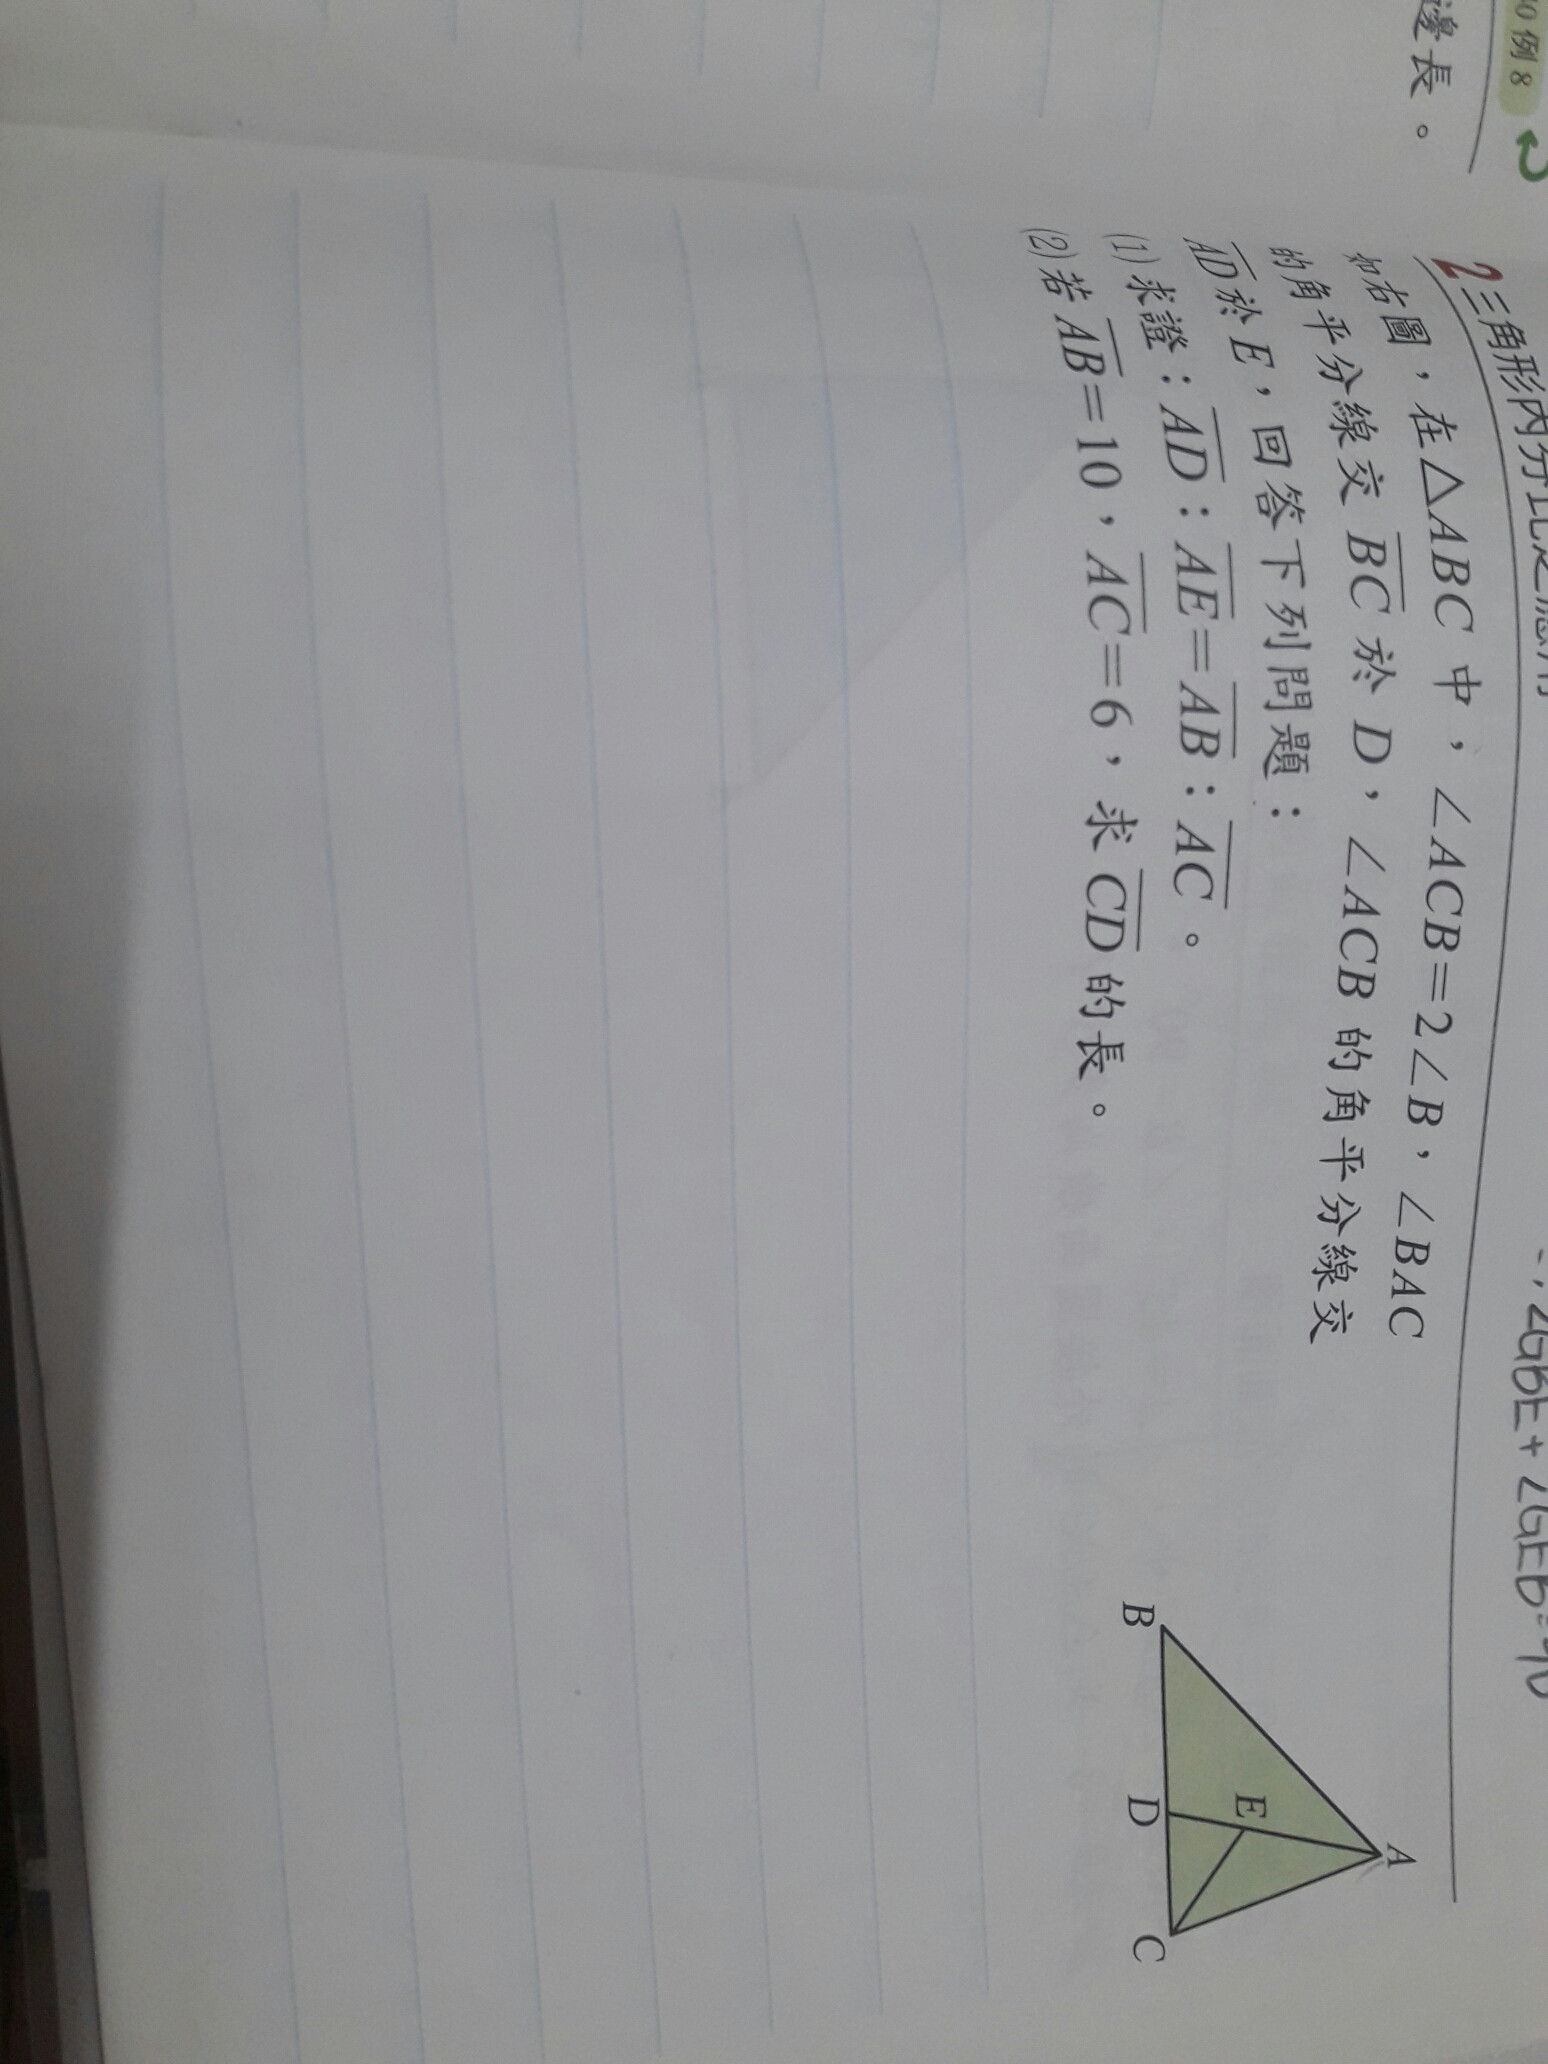 例8
邊長。
2 三角形內分比之應用
如右圖，在△ABC 中，∠ACB=2∠B，∠BAC
的角平分線交 BC 於 D，∠ACB 的角平分線交
AD 於 E，回答下列問題：
(1) 求證：AD：AE=AB：AC。
(2) 若 AB=10，AC=6，求 CD 的長。
A
E
B
D
C
∠GBE+∠GEB=90